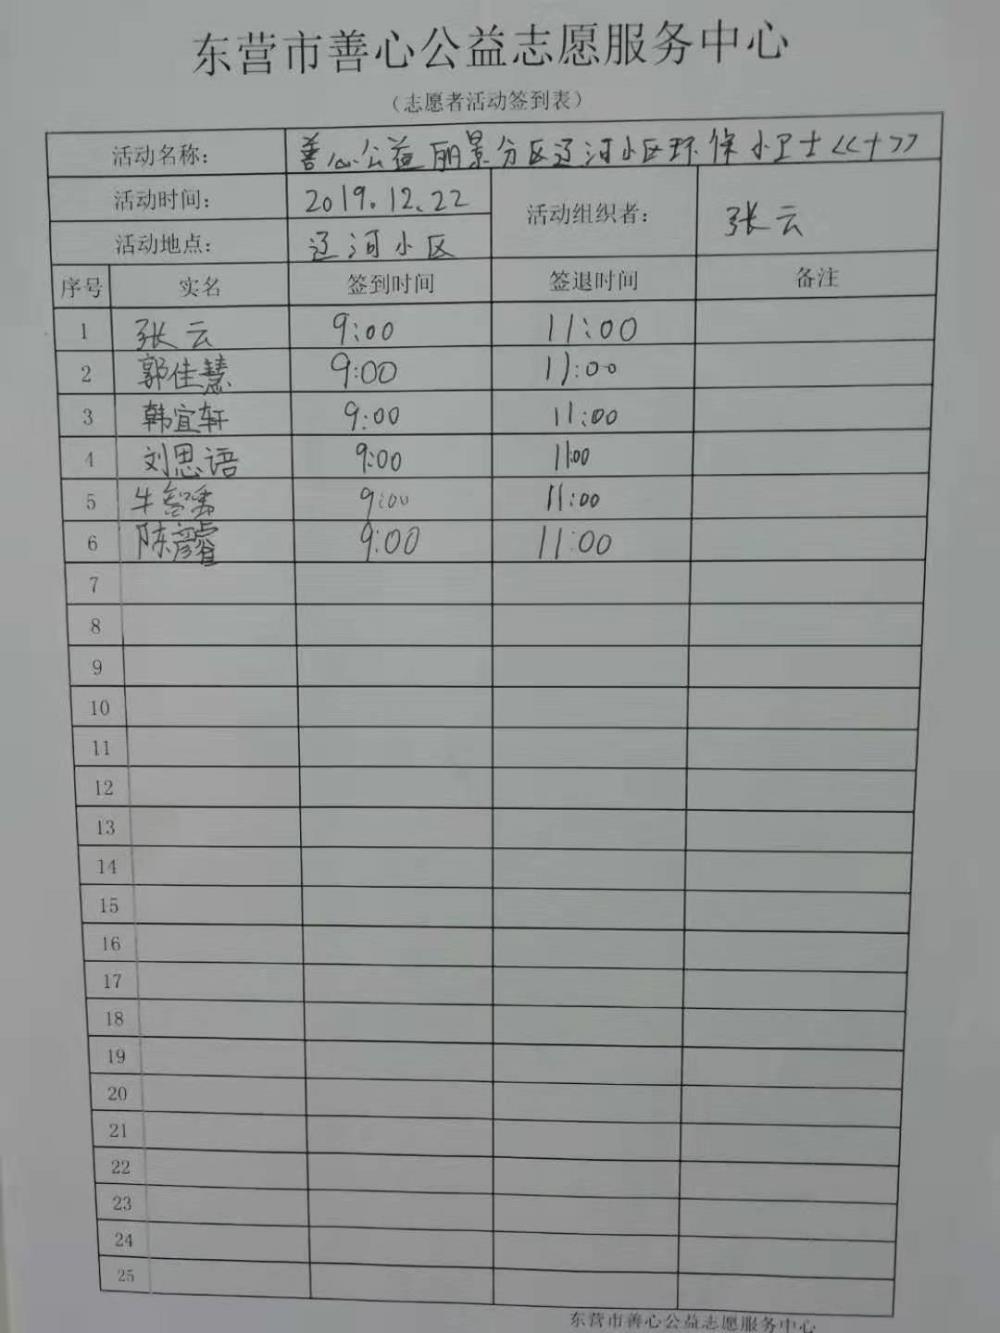 东营市善心公益志愿服务中心
（志愿者活动签到表）
活动名称： 善心公益丽景分区辽河小区环保小卫士<<十>>
活动时间： 2019.12.22 活动组织者： 张云
活动地点： 辽河小区
序号 实名 签到时间 签退时间 备注
1 张云 9:00 11:00
2 郭佳慧 9:00 11:00
3 韩宜轩 9:00 11:00
4 刘思语 9:00 11:00
5 牛 9:00 11:00
6 陈彦睿 9:00 11:00
7
8
9
10
11
12
13
14
15
16
17
18
19
20
21
22
23
24
25
东营市善心公益志愿服务中心